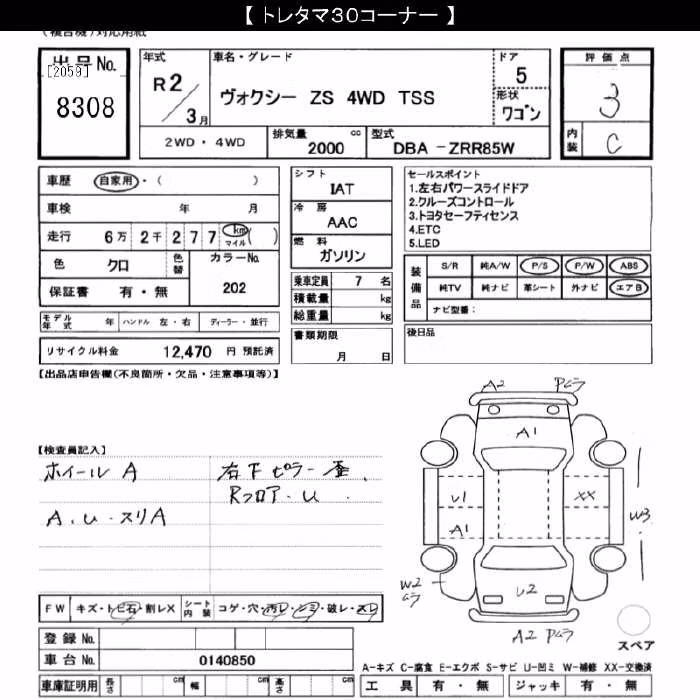 【 トレタマ30コーナー 】
(複合機)対応用紙
出品No.
[2059]
8308
年式
R2/3月
車名・グレード
ヴォクシー ZS 4WD TSS
ドア
5
形状
ワゴン
評価点
3
内装
C
2WD・4WD
排気量 2000 cc
型式 DBA -ZRR85W
車歴 自家用・( )
車検 年 月
走行 6万2千277 km マイル( )
色 クロ
色替
カラーNo. 202
保証書 有・無
シフト
IAT
冷房
AAC
燃料
ガソリン
乗車定員 7 名
積載量 kg
総重量 kg
書類期限
月 日
セールスポイント
1.左右パワースライドドア
2.クルーズコントロール
3.トヨタセーフティセンス
4.ETC
5.LED
装備品
S/R 純A/W P/S P/W ABS
純TV 純ナビ 革シート 外ナビ エアB
ナビ型番:
後日品
モデル年式 年 ハンドル 左・右 ディーラー・並行
リサイクル料金 12,470 円 預託済
【出品店申告欄(不良箇所・欠品・注意事項等)】
【検査員記入】
ホイール A
A.U.スリA
右下ピラー歪.
Rフロア.U.
A2 Pムラ
A1
U1
A1
XX
W3
W2
ムラ
U2
A2 Pムラ
スペア
FW キズ・トビ石・割レX
シート内装 コゲ・穴・汚レ・シミ・破レ・スレ
登録No.
車台No. 0140850
車庫証明用 長さ cm 幅 cm 高さ cm
A-キズ C-腐食 E-エクボ S-サビ U-凹ミ W-補修 XX-交換済
工具 有・無 ジャッキ 有・無